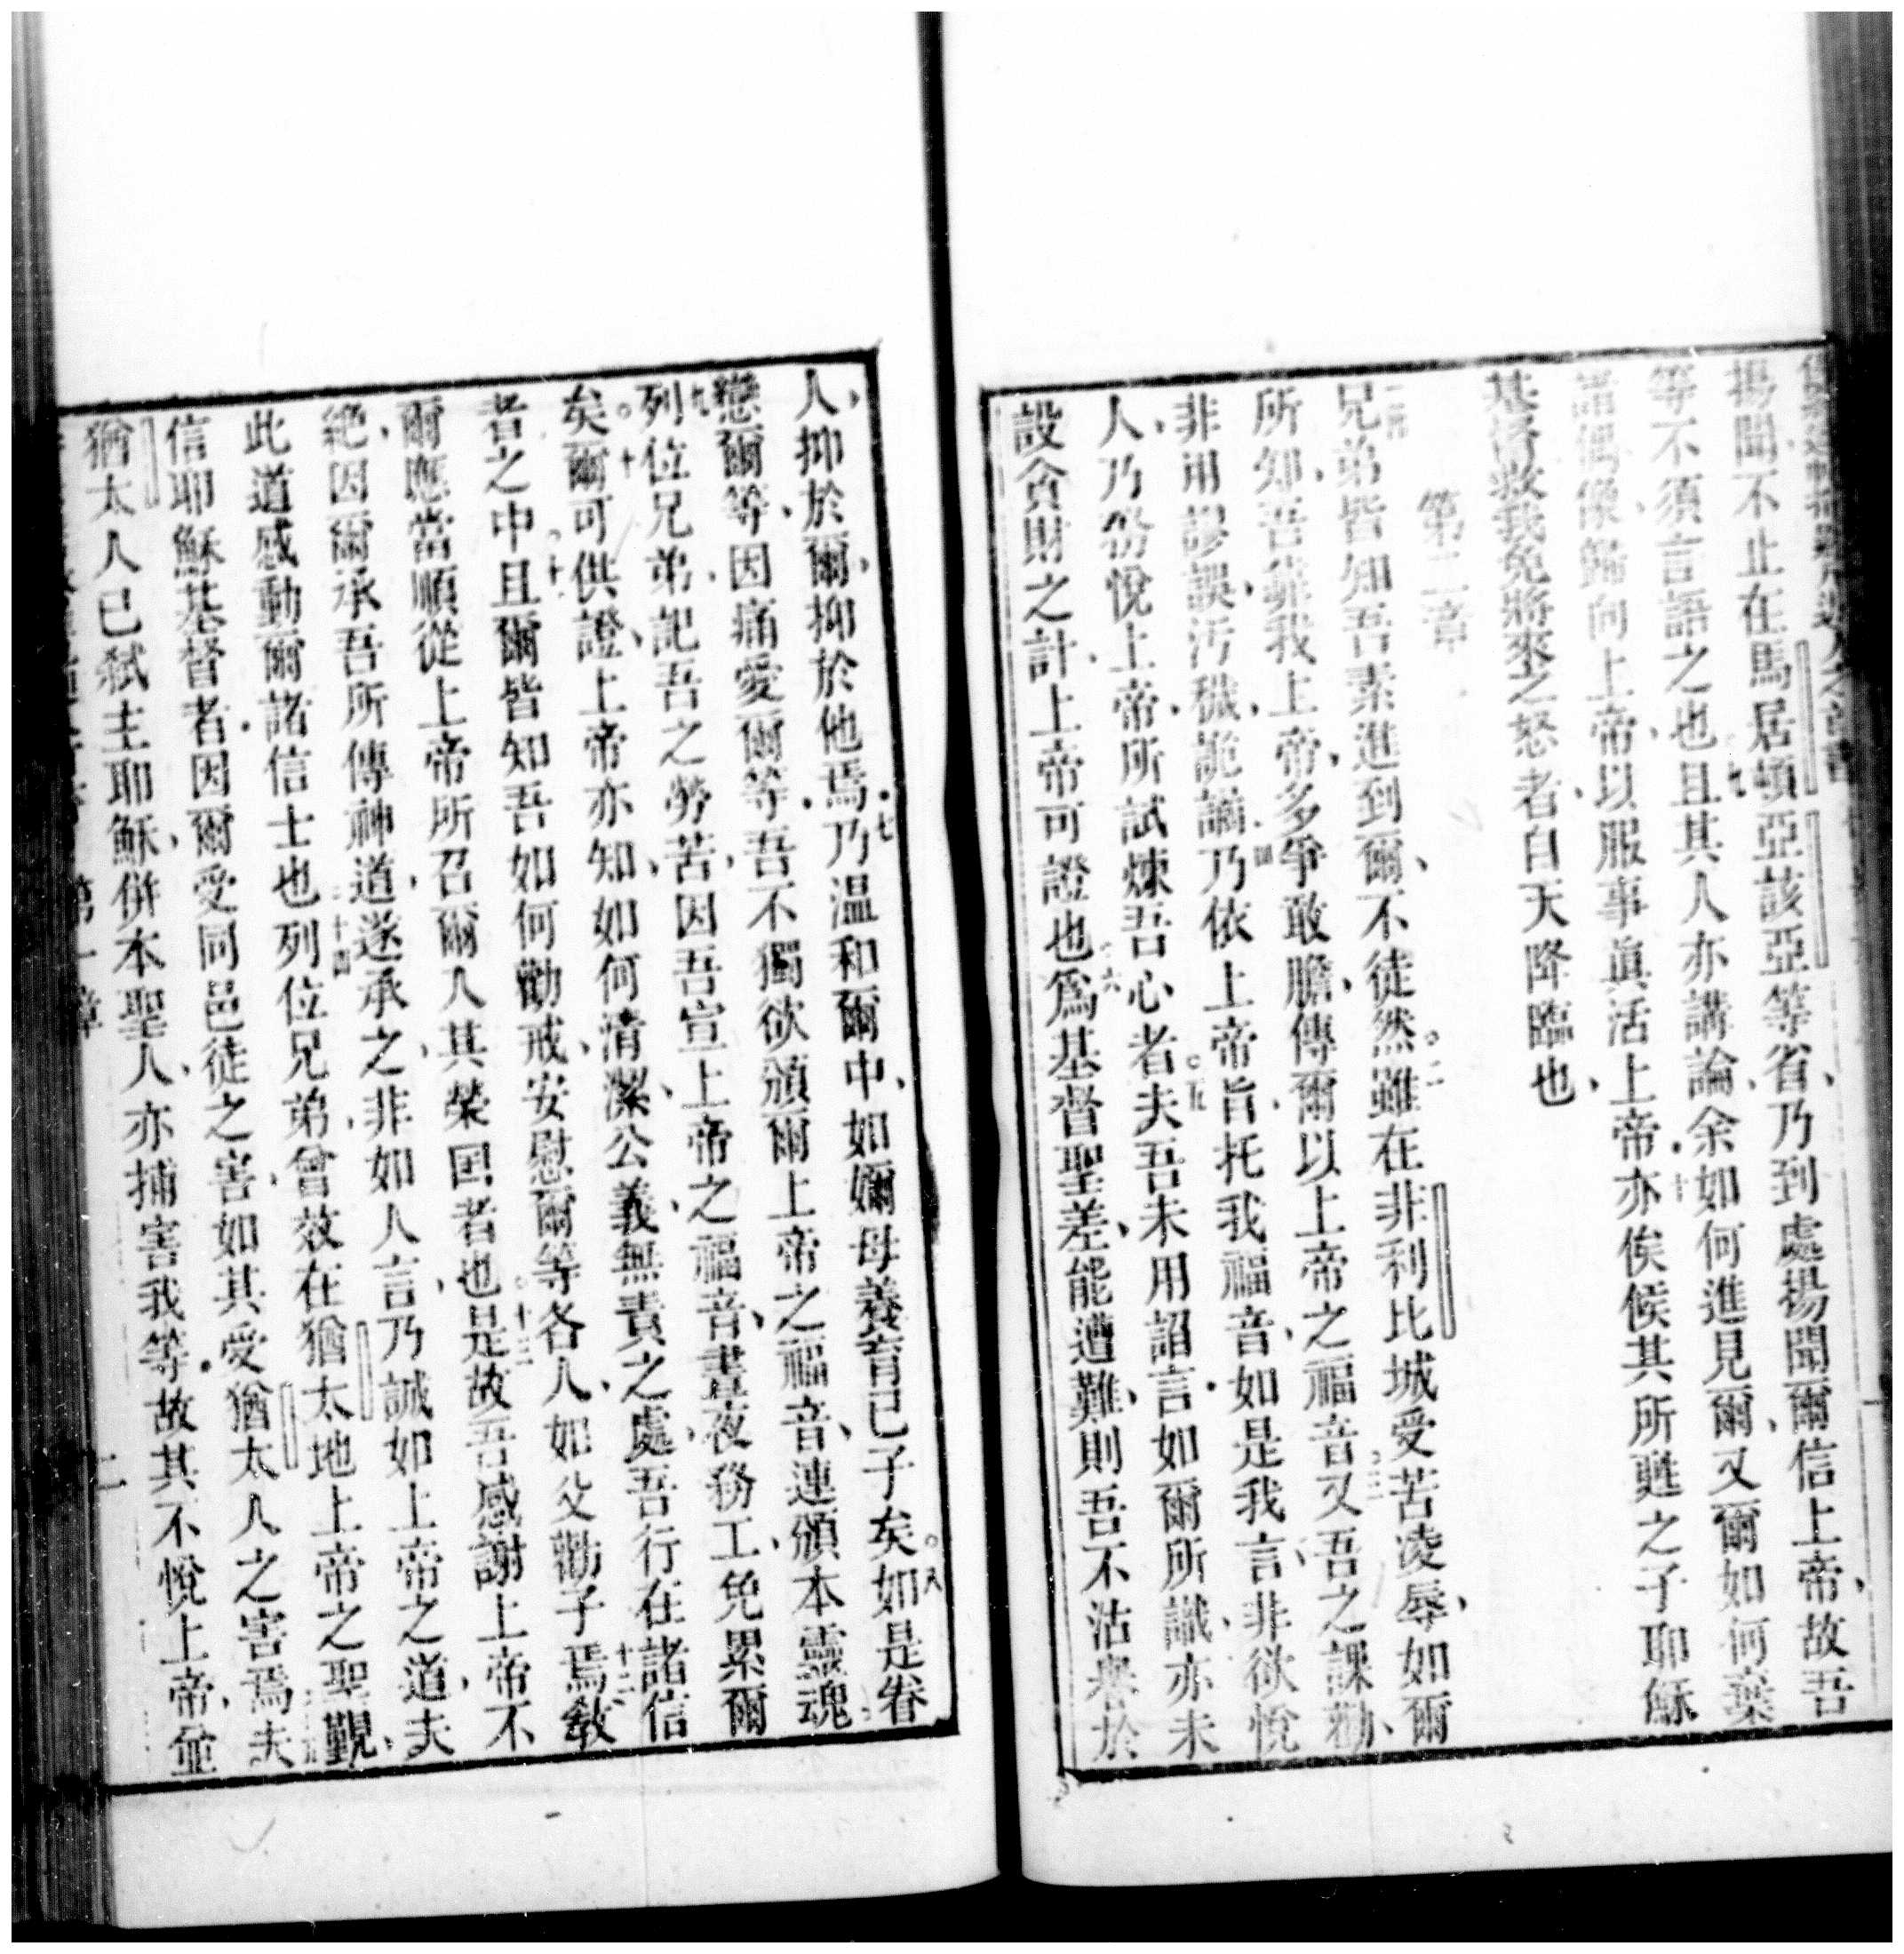 揚聞不止在馬居頓亞該亞等省乃到處揚聞爾信上帝故吾
等不須言語之也且其人亦講論余如何進見爾又爾如何棄
諸偶像歸向上帝以服事眞活上帝亦俟候其所甦之子耶穌
基督救我免將來之怒者自天降臨也
第二章
兄弟皆知吾素進到爾不徒然二雖在非利比城受苦凌辱如爾
所知吾靠我上帝多爭敢膽傳爾以上帝之福音三又吾之課勸
非用謬誤汚穢詭譎四乃依上帝旨托我福音如是我言非欲悅
人乃務悅上帝所試煉吾心者五夫吾未用諂言如爾所識亦未
設貪財之計上帝可證也六爲基督聖差能遭難則吾不沽譽於
人抑於爾抑於他焉七乃温和爾中如嬭母養育己子矣八如是眷
戀爾等因痛愛爾等吾不獨欲頒爾上帝之福音連頒本靈魂
九列位兄弟記吾之勞苦因吾宣上帝之福音晝夜務工免累爾
矣十爾可供證上帝亦知如何清潔公義無責之處吾行在諸信
者之中十一且爾皆知吾如何勸戒安慰爾等各人如父勸子焉十二教
爾應當順從上帝所召爾入其榮囯者也十三是故吾感謝上帝不
絶因爾承吾所傳神道遂承之非如人言乃誠如上帝之道夫
此道感動爾諸信士也十四列位兄弟曾效在猶太地上帝之聖覲
信耶穌基督者因爾受同邑徒之害如其受猶太人之害焉夫
猶太人已弒主耶穌併本聖人亦捕害我等故其不悅上帝並
第一章
二